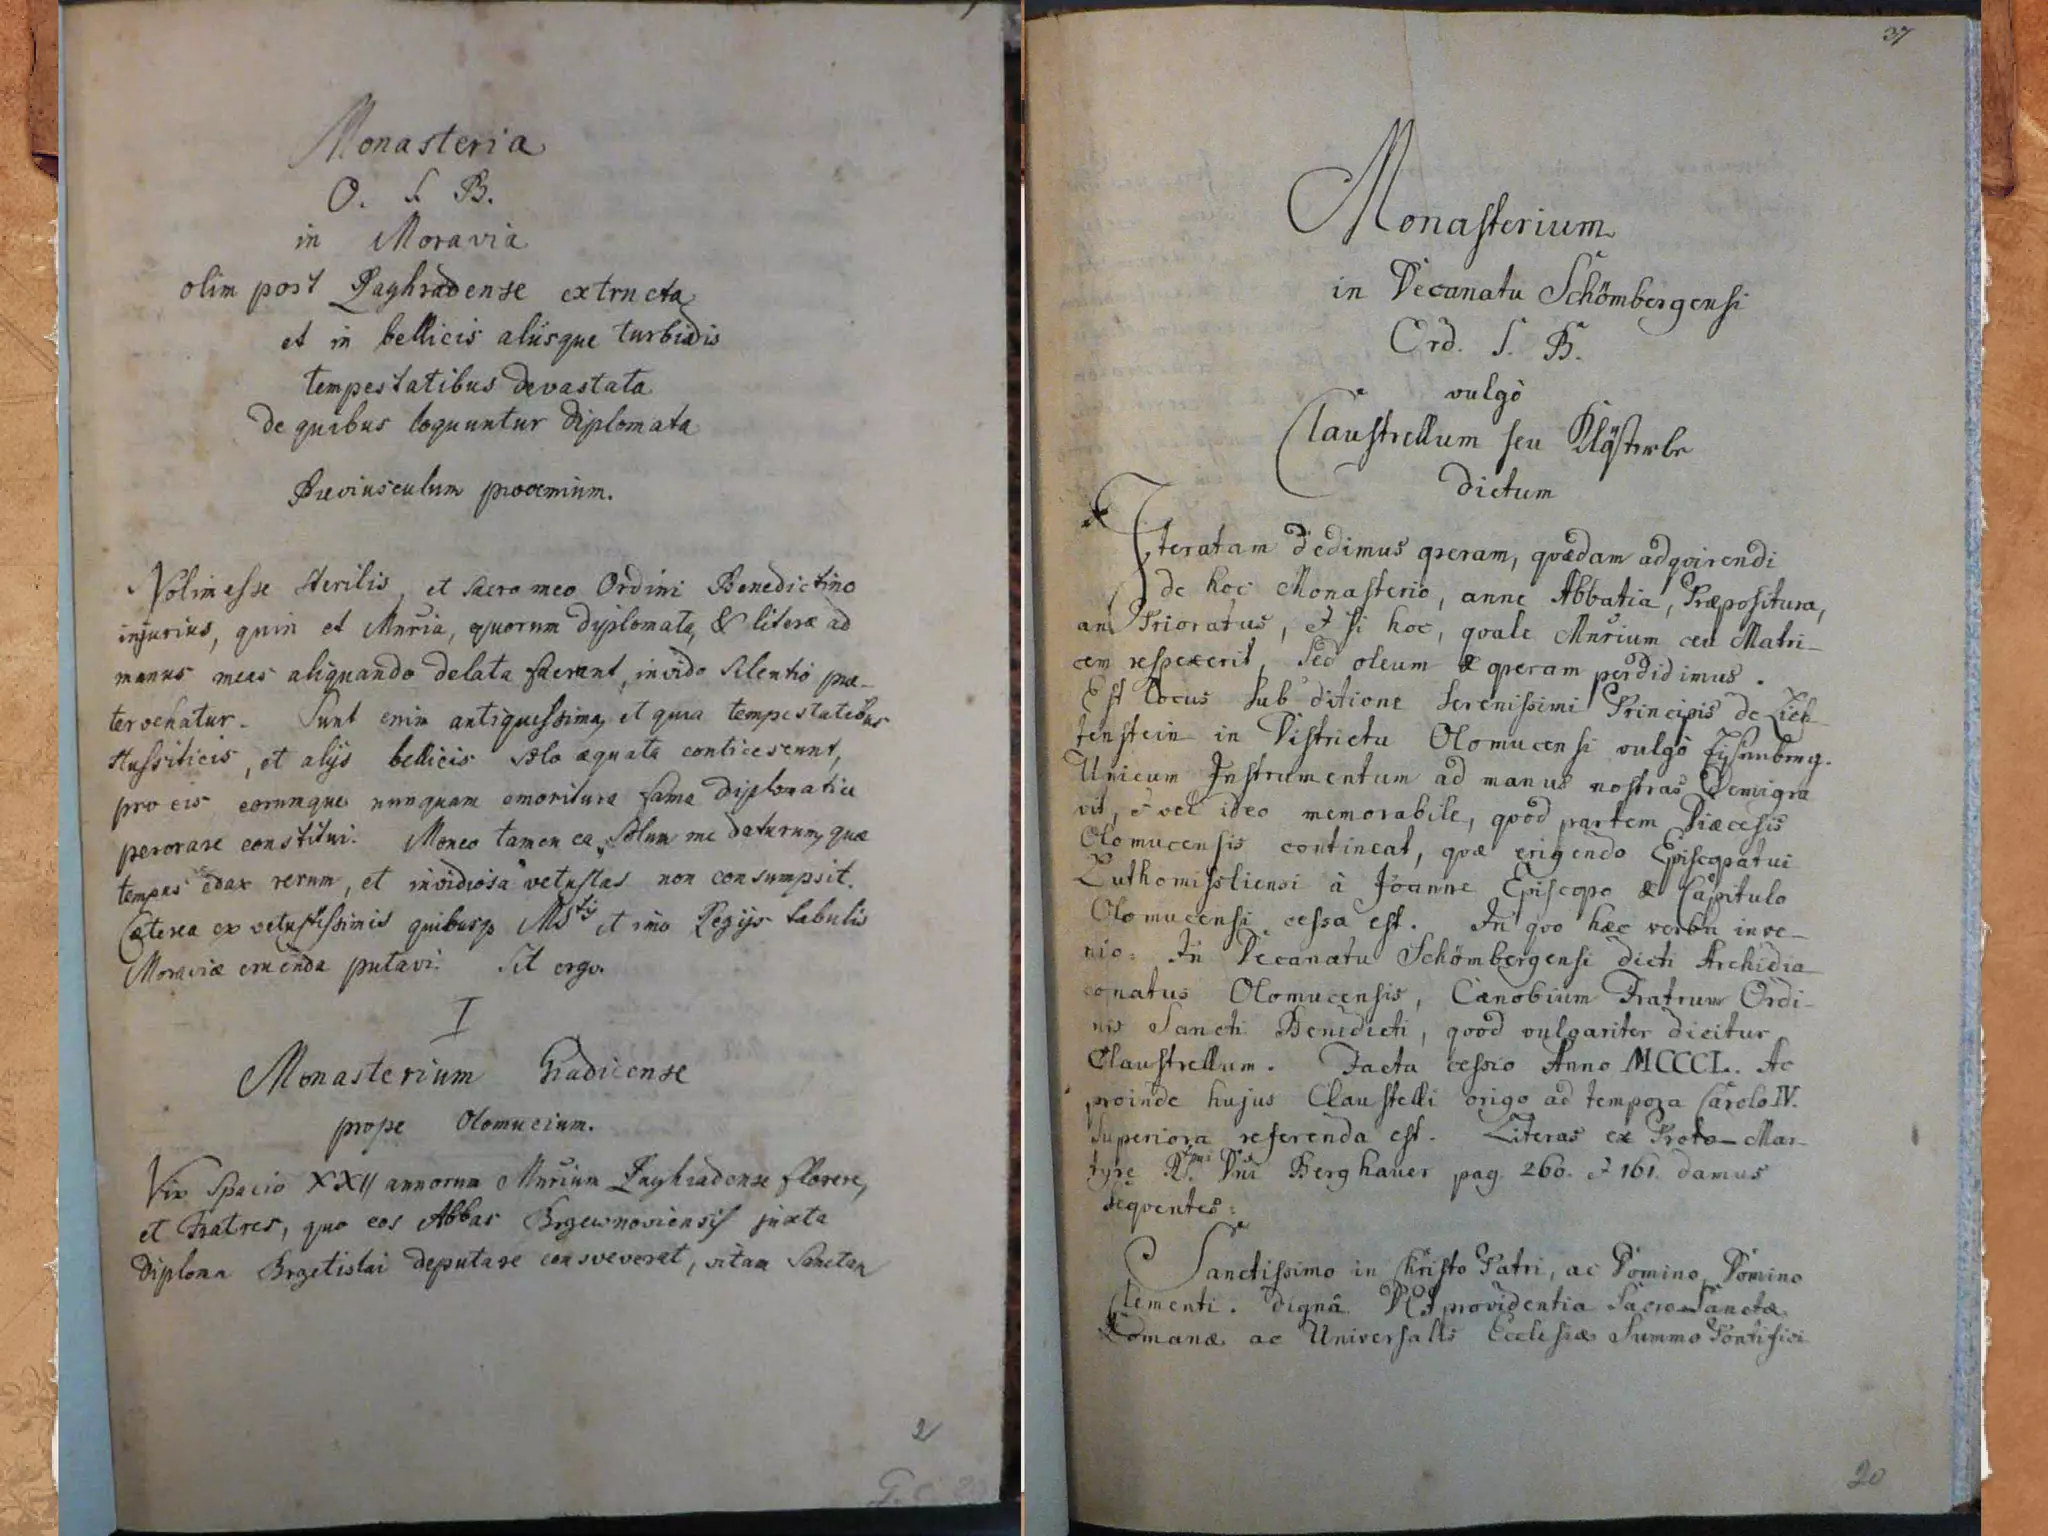 Monasteria
O. S. B.
in Moravia
olim post Rayhradense extructa
et in bellicis aliisque turbidis
tempestatibus devastata
de quibus loquuntur diplomata
Breviusculum prooemium.
Nolim esse sterilis, et sacro meo Ordini Benedictino
injurius, quin et Mnria, quorum diplomata, & literæ ad
manus meas aliquando delata fuerant, invido silentio præ-
tervehatur. Sunt enim antiquissima, et quia tempestatibus
Hussiticis, et alijs bellicis solo æquata conticescunt,
pro eis eorumque nunquam emoritura fama diplomatice
perorare constitui. Moneo tamen ea solum me daturum, quæ
tempus edax rerum, et invidiosa vetustas non consumpsit.
Cæterea ex vetustissimis quibusq MStis et imo Regijs tabulis
Moraviæ eruenda putavi. Sit ergo.
I
Monasterium Hradicense
prope Olomucium.
Vix spacio XXII annorum Mnrium Rayhradense florere,
et Fratres, quo eos Abbas Brzewnoviensis juxta
Diploma Brzetislai deputare consveverat, vitam Sanctam
2
37
Monasterium
in Decanatu Schömbergensi
Ord. S. B.
vulgò
Claustrellum seu Klösterle
dictum
Iteratam dedimus operam, qvædam adqvirendi
de hoc Monasterio, anne Abbatia, Præpositura,
an Prioratus, & si hoc, qvale Mnrium ceu Matri-
cem respexerit, sed oleum & operam perdidimus.
Est locus sub ditione Serenissimi Principis de Liech-
tenstein in Districtu Olomucensi vulgò Eysenberg.
Unicum Instrumentum ad manus nostras demigra
vit, & vel ideo memorabile, qvod partem Diæcesis
Olomucensis contineat, qvæ erigendo Episcopatui
Luthomissliensi à Joanne Episcopo & Capitulo
Olomucensi cessa est. In qvo hæc verba inve-
nio: In Decanatu Schömbergensi dicti Archidia-
conatus Olomucensis, Cænobium Fratrum Ordi-
nis Sancti Benedicti, qvod vulgariter dicitur
Claustrellum. Facta cessio Anno MCCCL. Ac
proinde hujus Claustelli origo ad tempora Carolo IV.
superiora referenda est. Literas ex Proto-Mar-
tyre Rmi Dni Berghauer pag. 260. & 161. damus
seqventes:
Sanctissimo in Christo Patri, ac Domino, Domino
Clementi. dignâ Dei providentia Sacro-Sanctæ
Romanæ ac Universalis Ecclesiæ Summo Pontifici
20